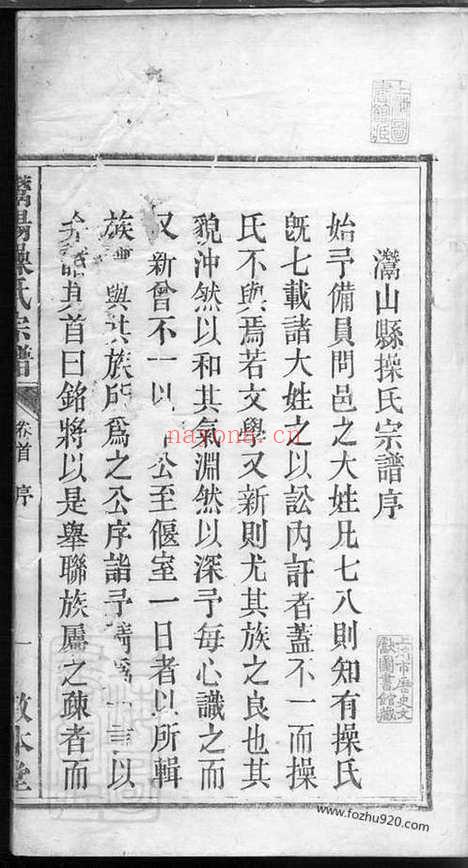 灊山縣操氏宗譜序
始予備員問邑之大姓凡七八則知有操氏
旣七載諸大姓之以訟內訐者蓋不一而操
氏不與焉若文學又新則尤其族之良也其
貌沖然以和其氣淵然以深予每心識之而
又新會不一以公至偃室一日者以所輯
族與其族所爲之公序詣予請爲一言以
其首曰銘將以是舉聯族屬之疎者而
操氏宗譜
卷首
序
一
敦本堂
上海市歷史文
獻圖書館藏
nayona.cn
www.fozhu920.com